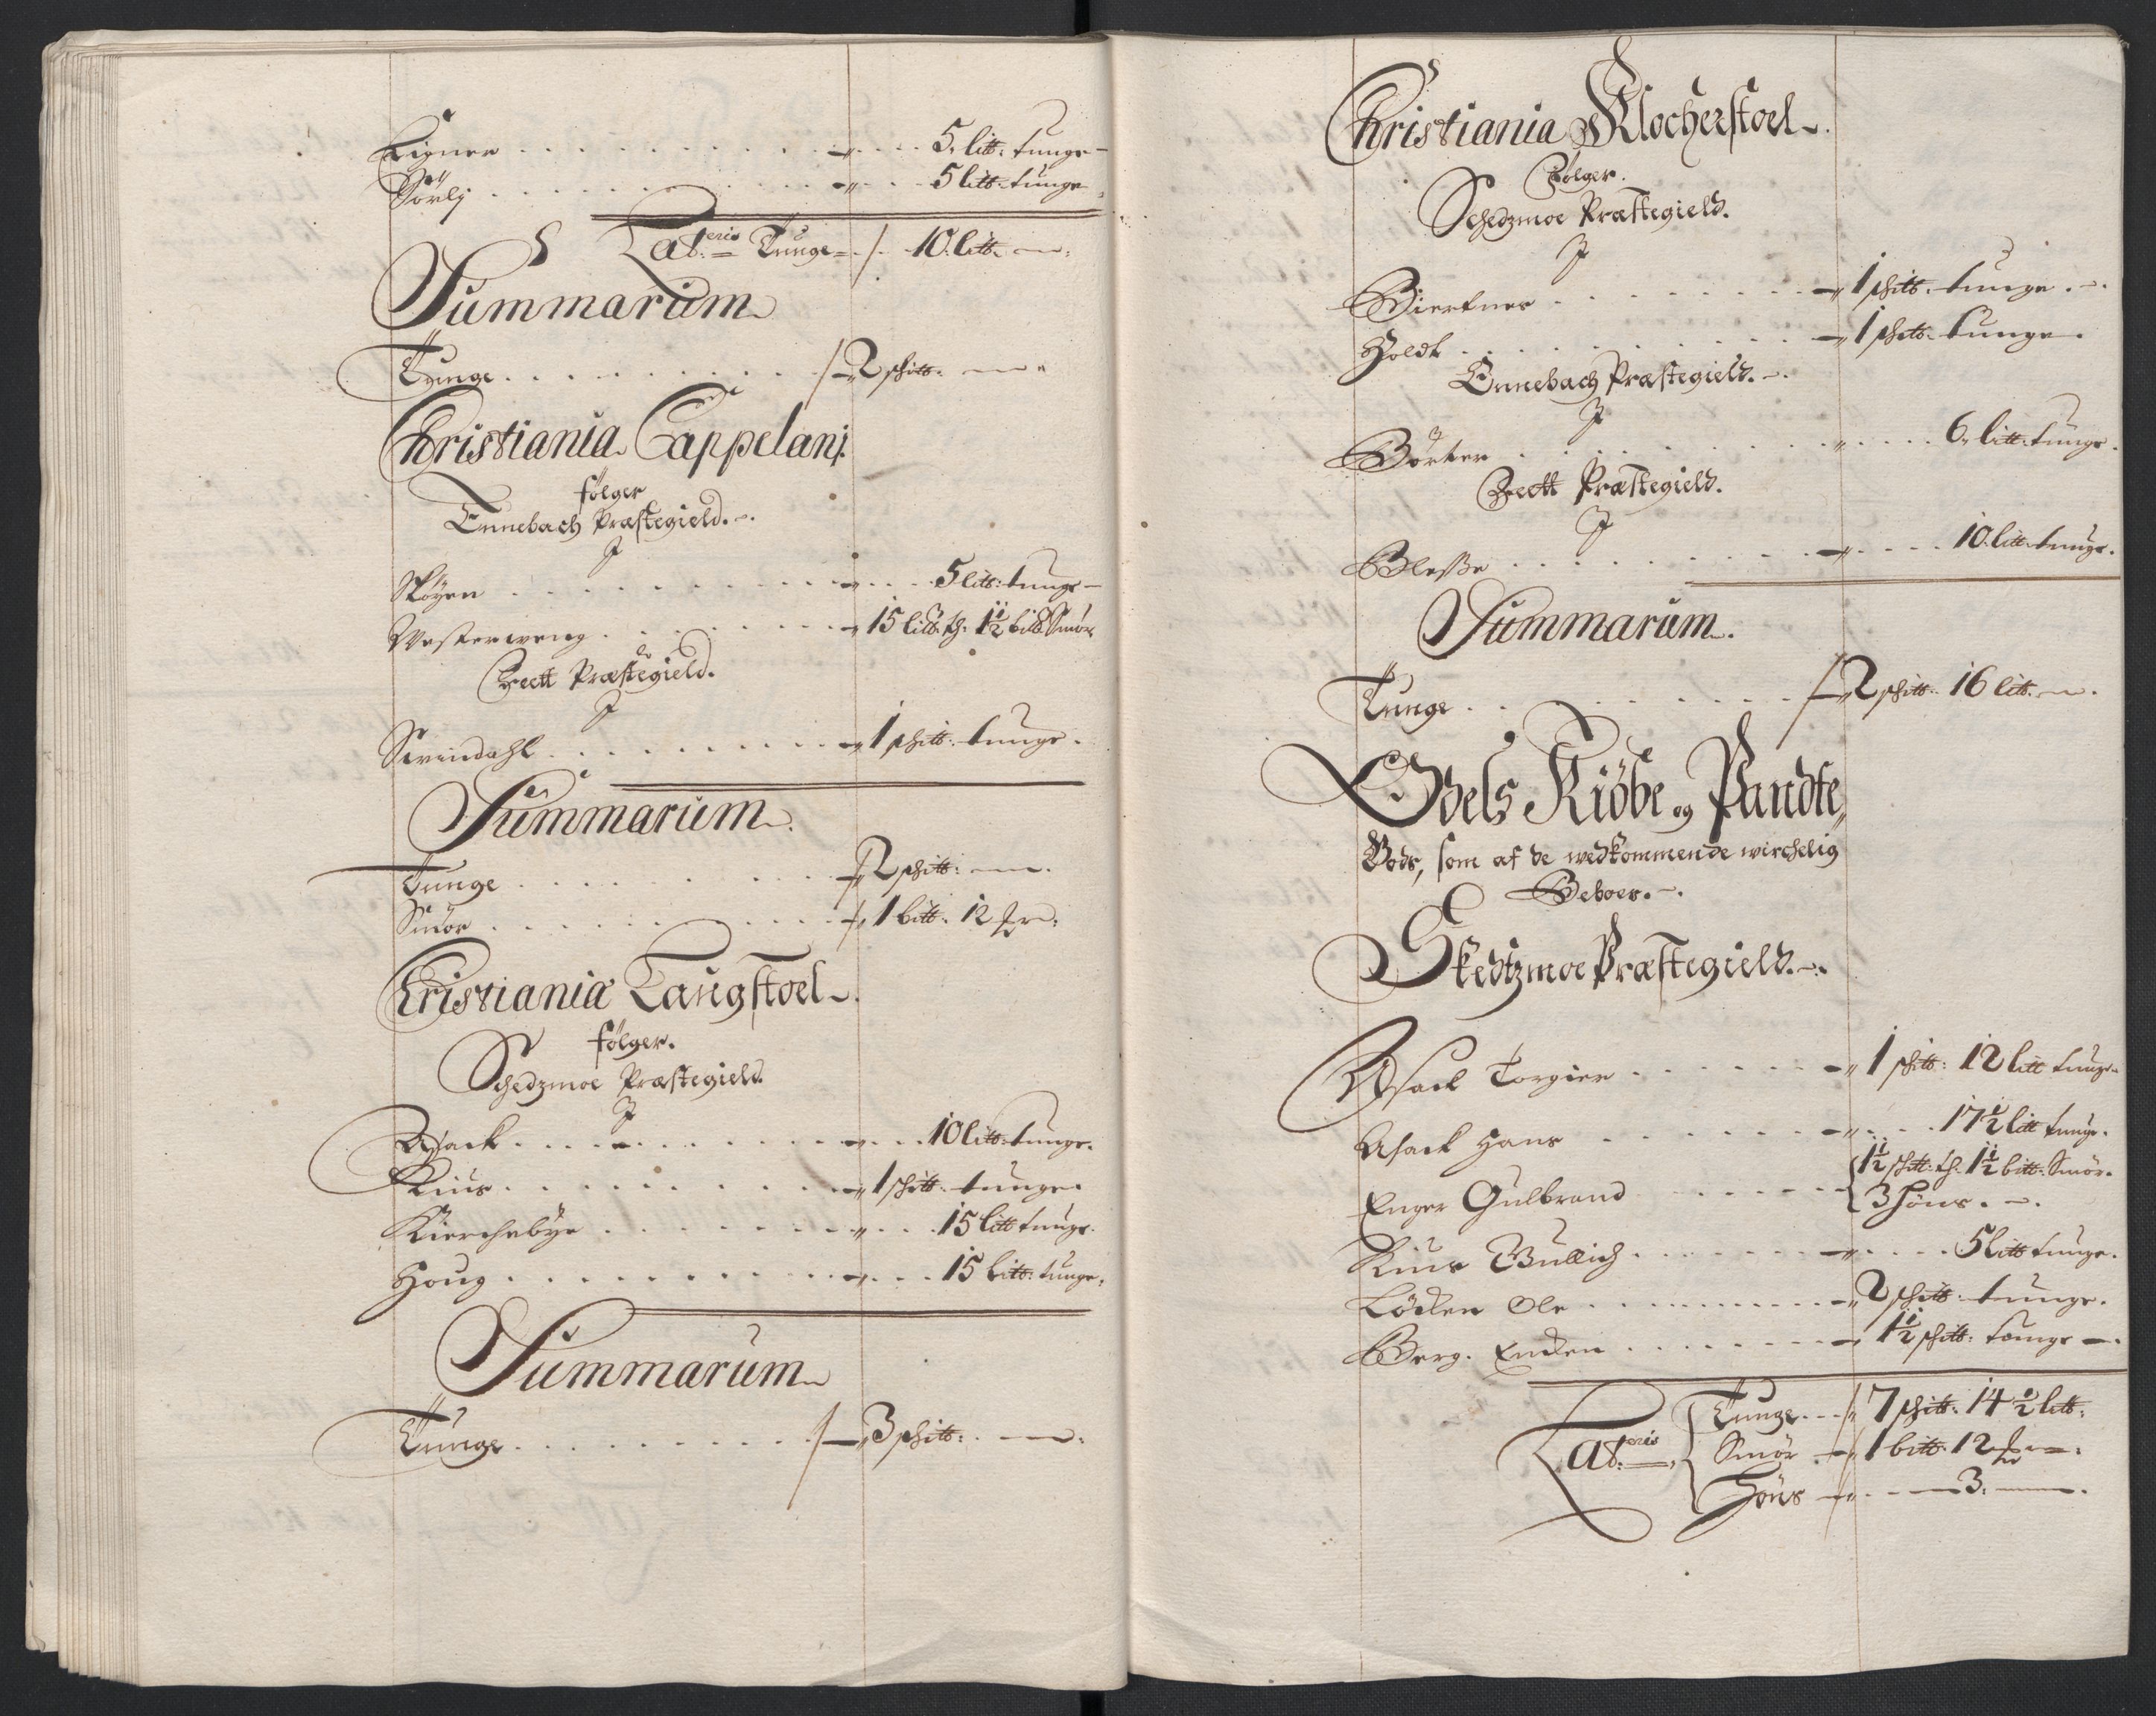 Eigner . . . . . 5. litt: tunge
Sörlj . . . . . 5 litt: tunge
Lat:eris Tunge 10. litt.
Summarum
Tunge . . . . . 2 schitt.
Christiania Cappelanj
følger
Ennebach Præstegield.
J
Skøyen . . . . . 5 litt: tunge
Westerweng . . . . . 15 litt: th: 1½ bitt. Smör
Feett Præstegield.
J
Svindahl . . . . . 1 schitt: tunge.
Summarum
Tunge . . . . . 2 schitt:
Smör . . . . . 1 bitt. 12
Christiania Laugstoel
følger.
Schedzmoe Præstegield.
J
Asack . . . . . 10 litt: tunge.
Kius . . . . . 1 schitt: tunge.
Kierchebye . . . . . 15 litt tunge.
Houg . . . . . 15 litt: tunge.
Summarum
Tunge . . . . . 3 schitt:
Christiania Klocherstoel
Følger.
Schedzmoe Præstegield.
J
Biertner . . . . . 1 schitt. tunge.
Holdt . . . . . 1 schitt. tunge.
Ennebach Præstegield.
J
Börter . . . . . 6. litt: tunge.
Feett Præstegield.
J
Blesße . . . . . 10. litt. tunge.
Summarum.
Tunge . . . . . 2 schitt. 16 litt.
Odels Kiöbe og Pandte
Gods, som af de wedkommende wirchelig
Beboes.
Skedtzmoe Præstegield.
Asack Torgier . . . . . 1 schitt: 12 litt tunge
Asack Hans . . . . . 17½ litt tunge.
Enger Gulbrand . . . . . 1½ schitt: th: 1½ bitt: Smör.
3 Höns.
Kius Wullich . . . . . 5 litt tunge.
Löcken Ole . . . . . 2 schitt: tunge.
Berg. Enken . . . . . 1½ schitt: tunge
Lat:eris Tunge 7 schitt: 14½ litt:
Smör 1 bitt. 12
Höns 3.